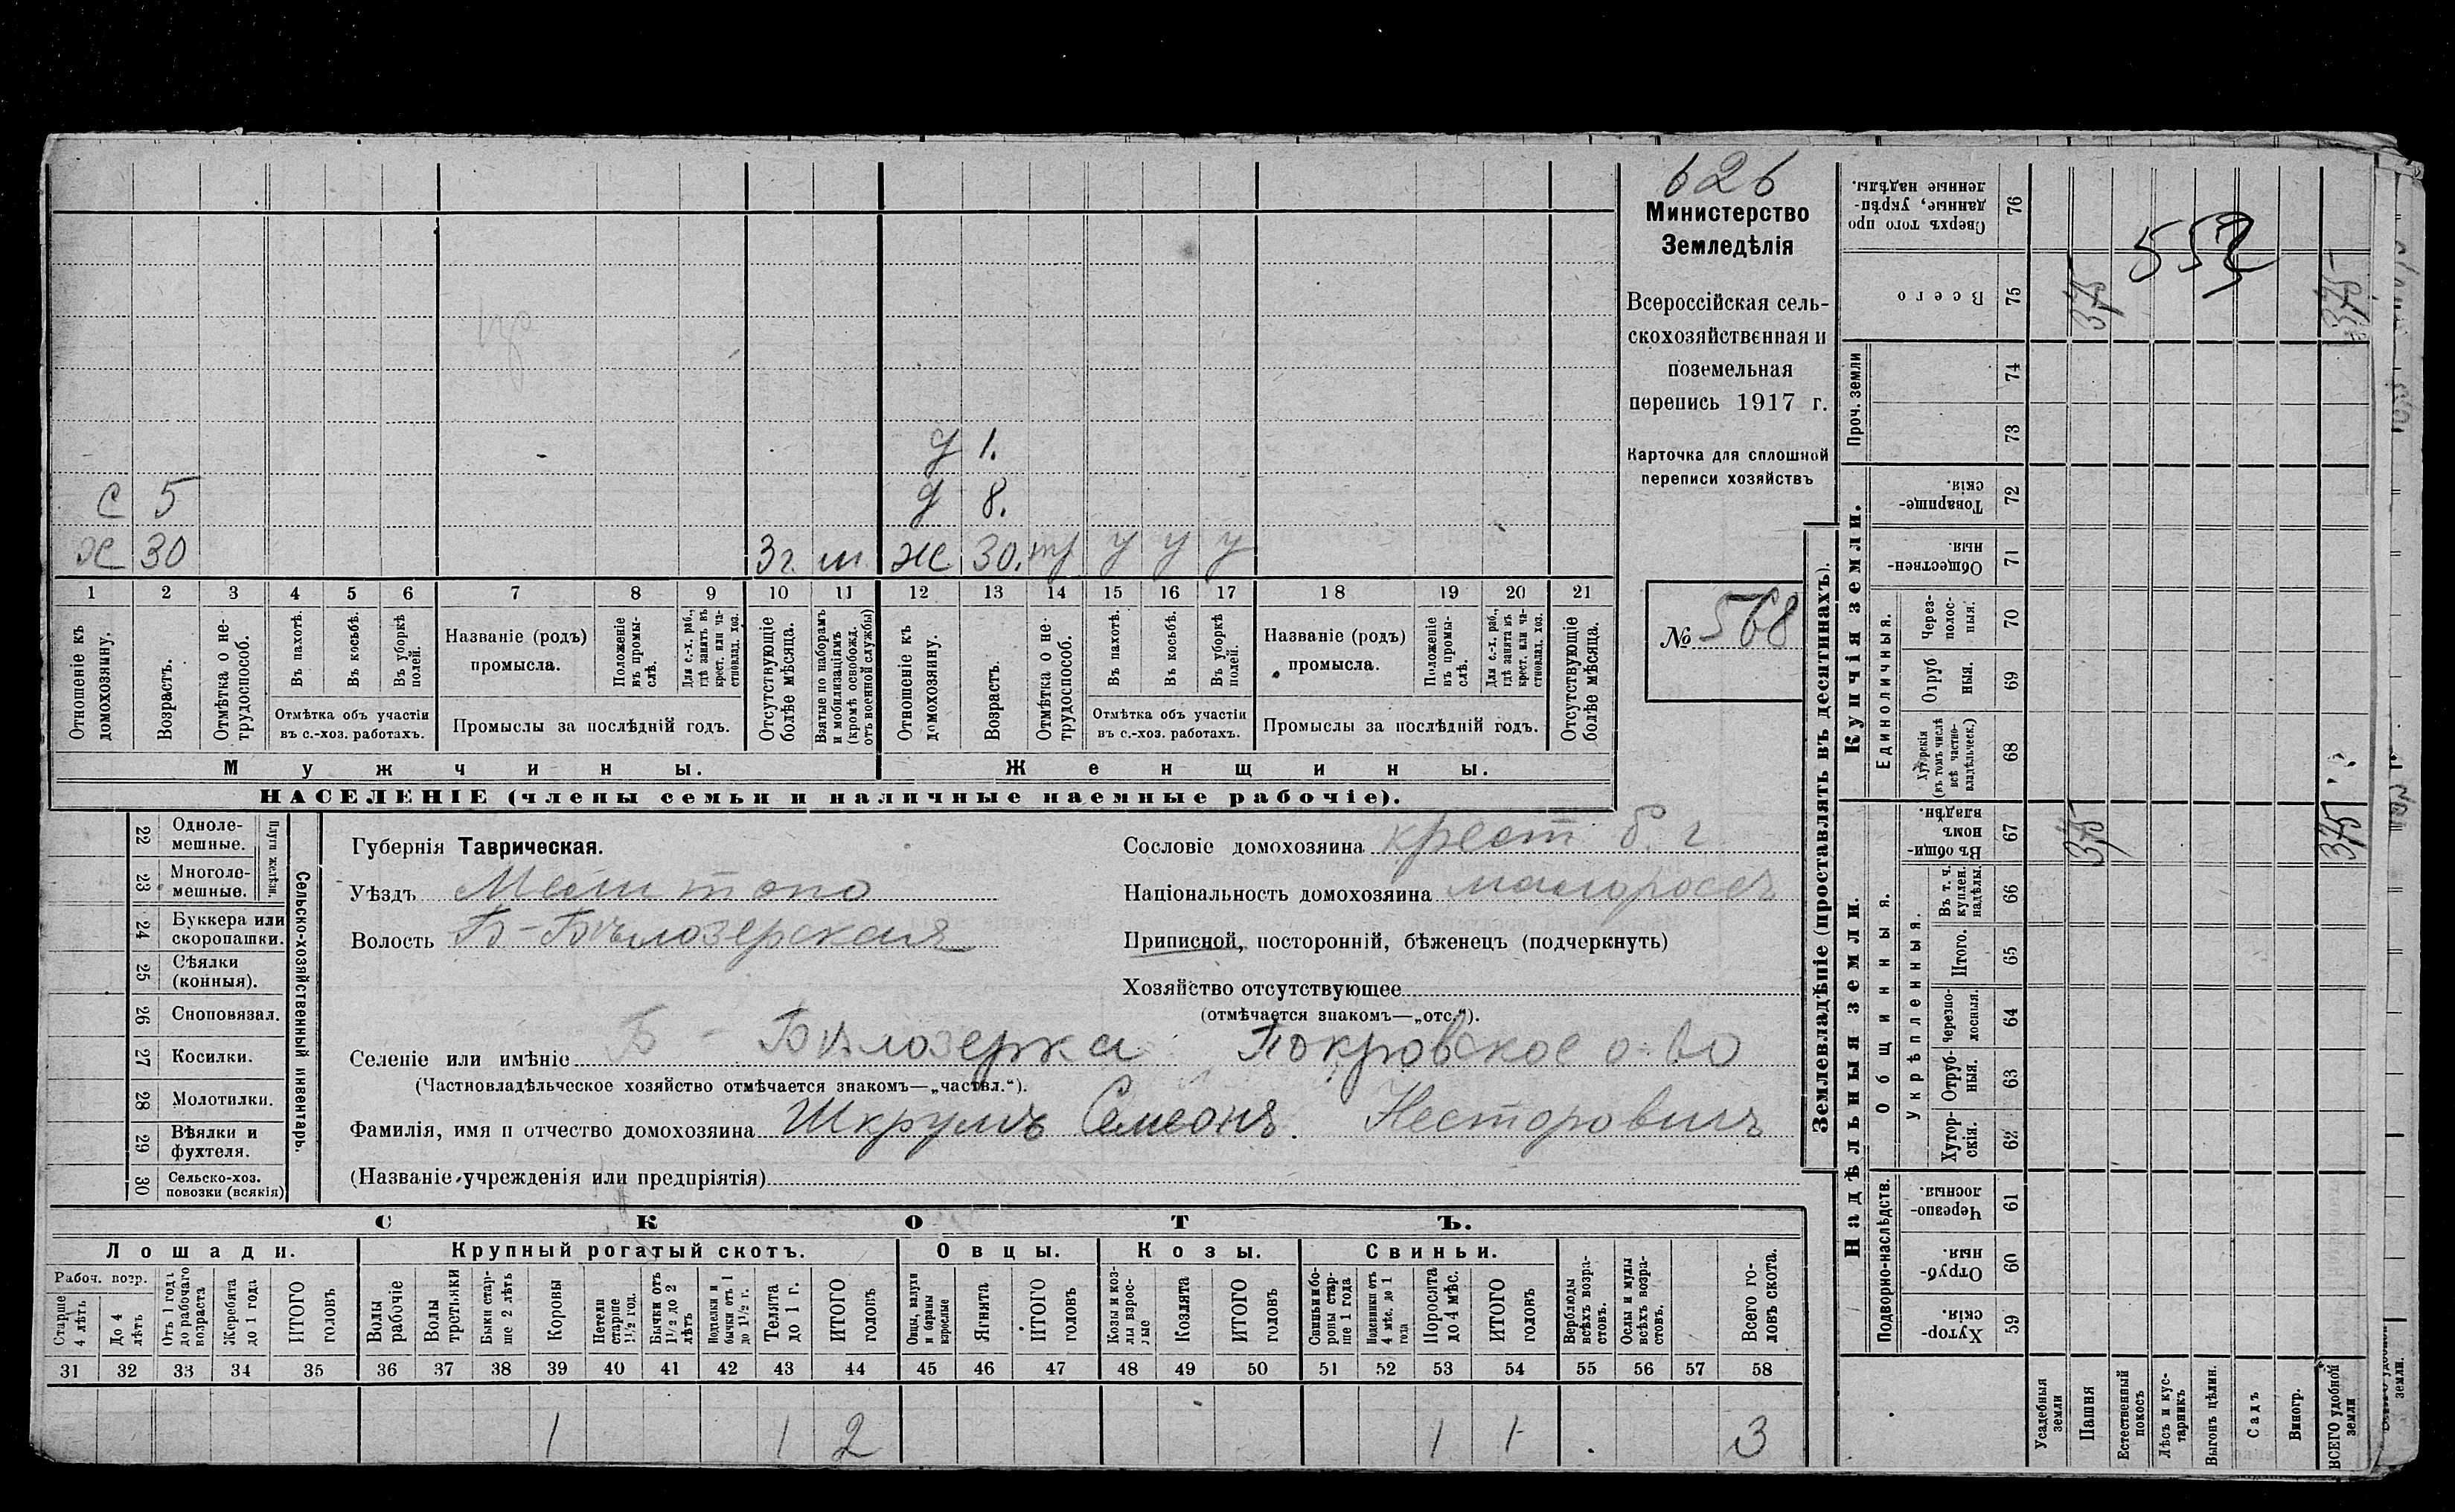 626
Министерство
Земледѣлія
Всероссійская сель-
скохозяйственная и
поземельная
перепись 1917 г.
Карточка для сплошной
переписи хозяйствъ
№ 568
д 1.
с 5 д 8.
х 30 3 г. м ж 30. у у у
1 2 3 4 5 6 7 8 9 10 11 12 13 14 15 16 17 18 19 20 21
Отношеніе къ домохозяину.
Возрастъ.
Отмѣтка о не-трудоспособ.
Въ пахотѣ.
Въ косьбѣ.
Въ уборкѣ полей.
Отмѣтка объ участіи
въ с.-хоз. работахъ.
Названіе (родъ)
промысла.
Положеніе въ промы-слѣ.
Для с.-х. раб., гдѣ занятъ въ крест. или ча-стновлад. хоз.
Промыслы за послѣдній годъ.
Отсутствующіе болѣе мѣсяца.
Взятые по наборамъ и мобилизаціямъ (кромѣ освобожд. отъ военной службы)
Отношеніе къ домохозяину.
Возрастъ.
Отмѣтка о не-трудоспособ.
Въ пахотѣ.
Въ косьбѣ.
Въ уборкѣ полей.
Отмѣтка объ участіи
въ с.-хоз. работахъ.
Названіе (родъ)
промысла.
Положеніе въ промы-слѣ.
Для с.-х. раб., гдѣ занята въ крест. или ча-стновлад. хоз.
Промыслы за послѣдній годъ.
Отсутствующіе болѣе мѣсяца.
Мужчины. Женщины.
НАСЕЛЕНІЕ (члены семьи и наличные наемные рабочіе).
Сельско-хозяйственный инвентарь.
Плуги желѣзн.
22 Одноле-мешные.
23 Многоле-мешные.
24 Буккера или скоропашки.
25 Сѣялки (конныя).
26 Сноповязал.
27 Косилки.
28 Молотилки.
29 Вѣялки и фухтеля.
30 Сельско-хоз. повозки (всякія)
Губернія Таврическая.
Уѣздъ Мелитопо
Волость Б-Бѣлозерская
Сословіе домохозяина крест б. г
Національность домохозяина малороссъ
Приписной, посторонній, бѣженецъ (подчеркнуть)
Хозяйство отсутствующее
(отмѣчается знакомъ—„отс.“).
Селеніе или имѣніе Б - Бѣлозерка Покровское о-во
(Частновладѣльческое хозяйство отмѣчается знакомъ—„частвл.“).
Фамилія, имя и отчество домохозяина Шкрумъ Семенъ. Несторовичъ
(Названіе учрежденія или предпріятія)
СКОТЪ.
Лошади. Крупный рогатый скотъ. Овцы. Козы. Свиньи.
Рабоч. возр.
Старше 4 лѣтъ
До 4 лѣтъ
Отъ 1 года до рабочаго возраста
Жеребята до 1 года
ИТОГО головъ
Волы рабочіе
Волы третьяки
Быки стар-ше 2 лѣтъ
Коровы
Нетели старше 1½ год.
Бычки отъ 1½ до 2 лѣтъ
Подтелки и бычки отъ 1 до 1½ г.
Телята до 1 г.
ИТОГО головъ
Овцы, валухи и бараны взрослые
Ягнята
ИТОГО головъ
Козы и коз-лы взрос-лые
Козлята
ИТОГО головъ
Свиньи и бо-ровы стар-ше 1 года
Подсвинки отъ 4 мѣс. до 1 года
Поросята до 4 мѣс.
ИТОГО головъ
Верблюды всѣхъ возра-стовъ.
Ослы и мулы всѣхъ возра-стовъ.
Всего го-ловъ скота.
31 32 33 34 35 36 37 38 39 40 41 42 43 44 45 46 47 48 49 50 51 52 53 54 55 56 57 58
1 1 2 1 1 3
Землевладѣніе (проставлять въ десятинахъ).
Надѣльныя земли.
Купчія земли.
Проч. земли
Подворно-наслѣдств.
Общинныя.
Укрѣпленныя.
Единоличныя.
Сверхъ того про
данные, укрѣп-
ленные надѣлы. 76
Всего 75 375 375
553
74
73
Товарище-скія. 72
Обществен-ныя. 71
Через-полос-ныя. 70
Отруб ныя. 69
Хуторскія (въ томъ числѣ всѣ частно-владѣльческ.) 68
Въ общи-номъ владѣн. 67 375 375
Въ т. ч. куплен. надѣлы. 66
Итого. 65
Черезпо-лосныя. 64
Отруб-ныя. 63
Хутор-скія. 62
Черезпо-лосныя. 61
Отруб-ныя. 60
Хутор-скія. 59
Усадебныя земли
Пашня
Естественный покосъ
Лѣсъ и кус-тарникъ
Выгонъ цѣлин.
Садъ
Виногр.
ВСЕГО удобной земли